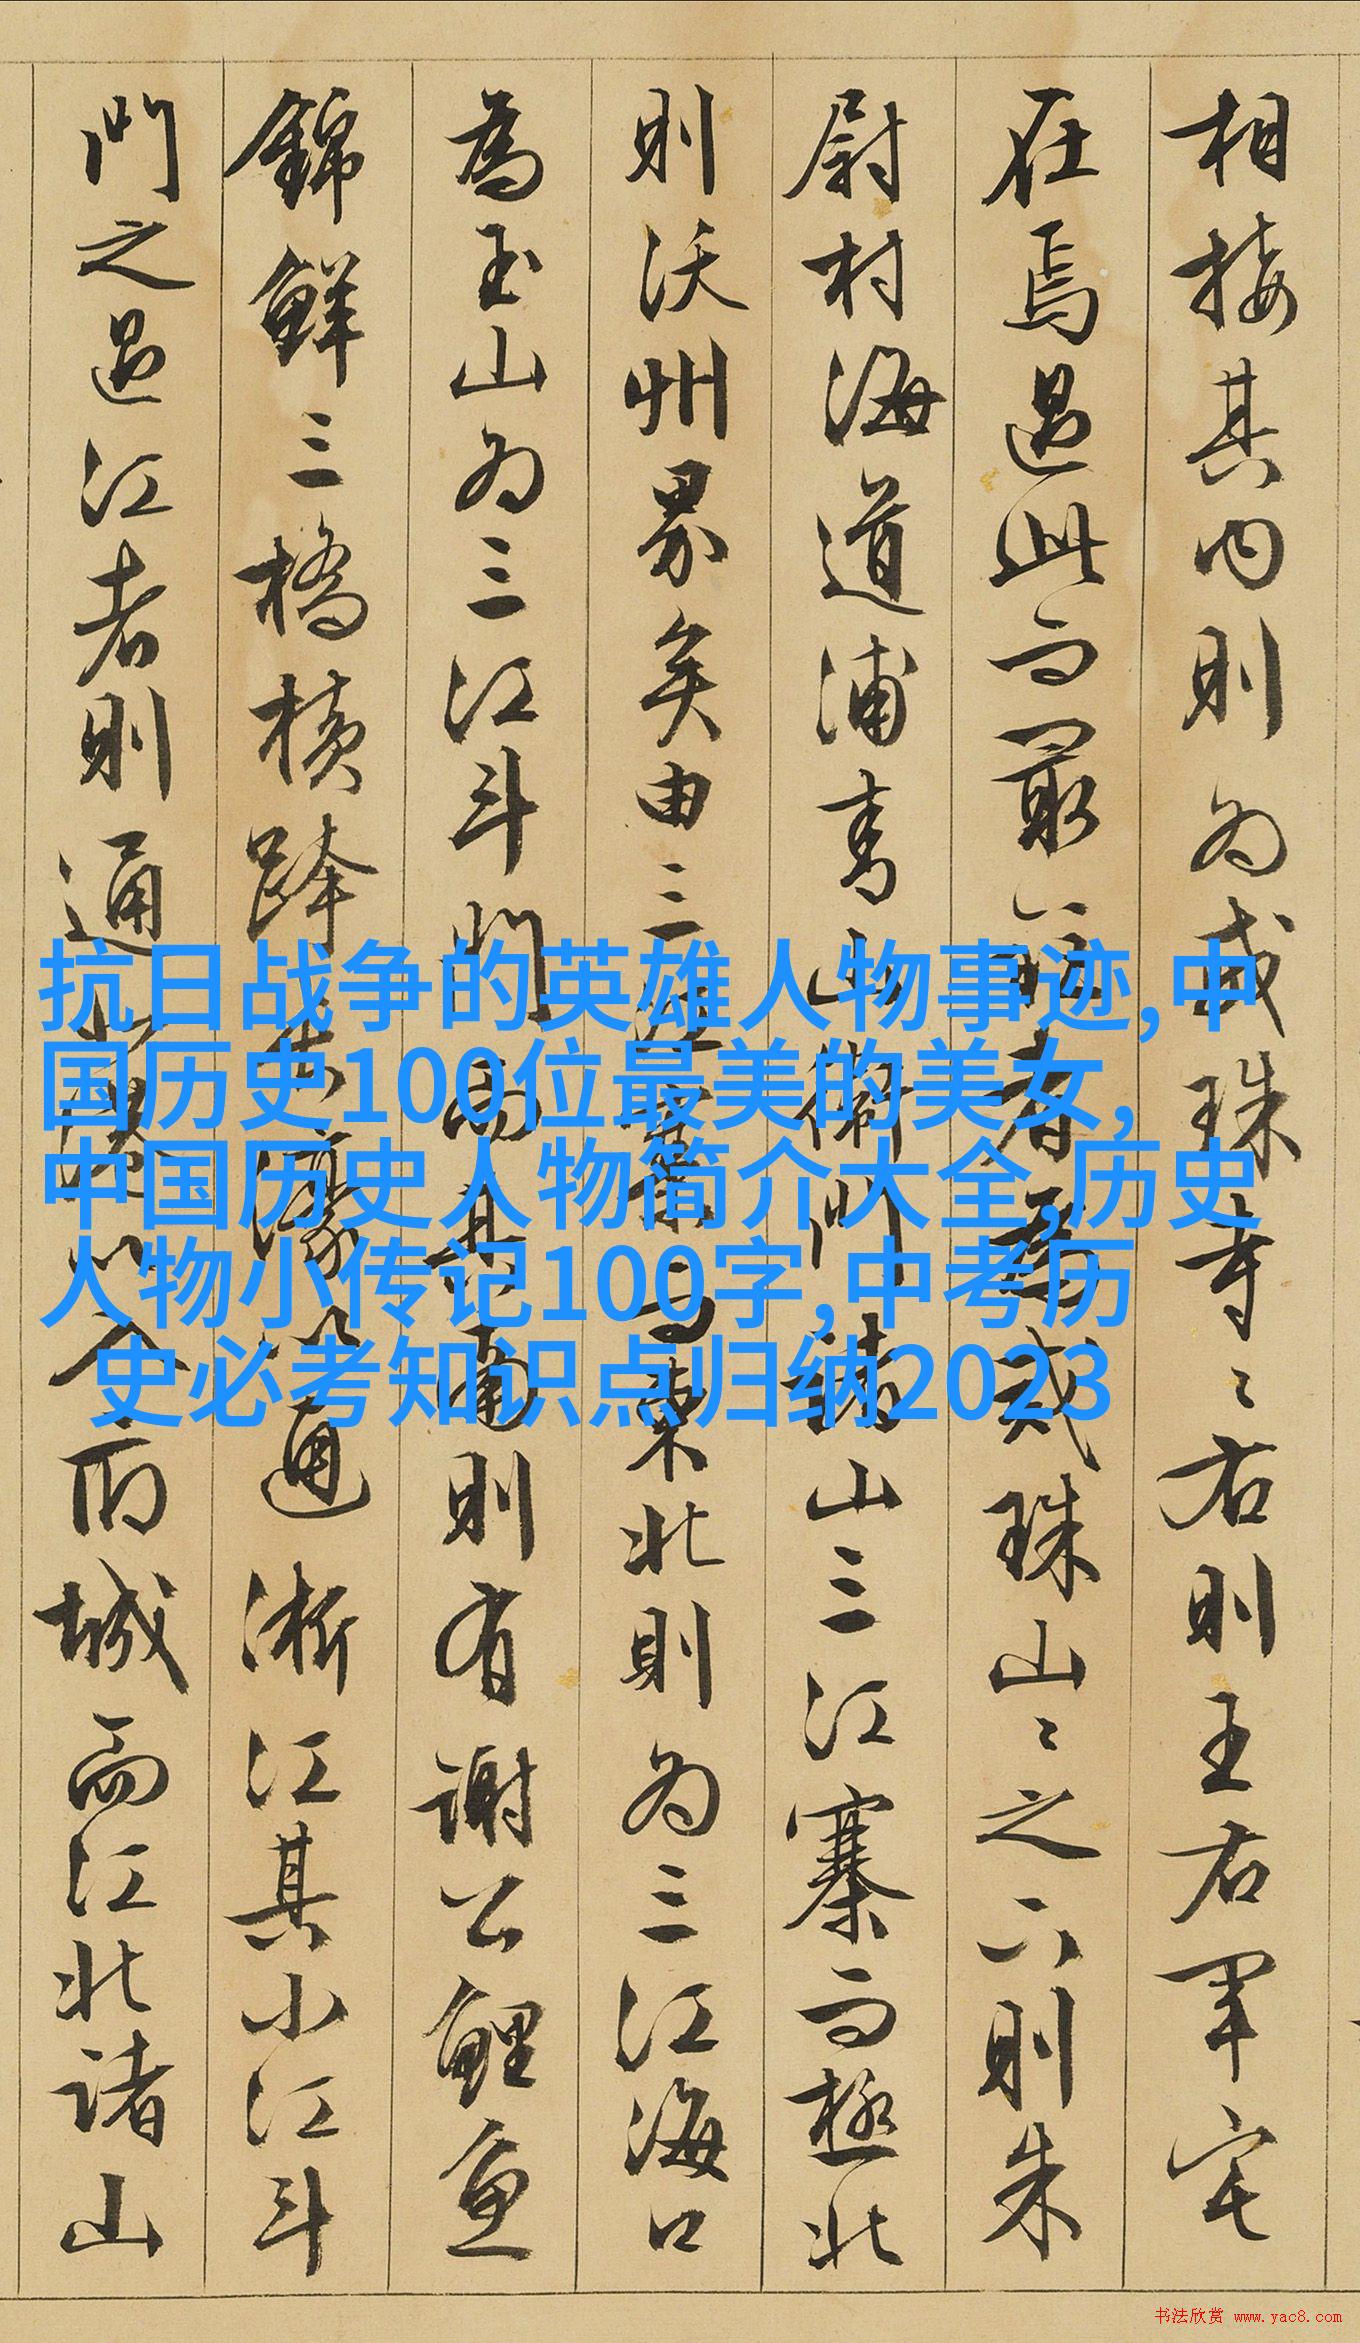 相接其内則为戒珠寺〻右則王右军宅
在焉過此而最者為戒珠山〻之下則朱
尉村海道浦青山衛諸山三江寨而极北
則沃州界矣由三江東北則为三江海口
為玉山为三江斗門而其南則有谢公鲤鱼
錦鮮三橋横跨通浙江其小江斗
門之過江者則通以入而城而江北诸山
抗日战争的英雄人物事迹,中
国历史100位最美的美女,
中国历史人物简介大全,历史
人物小传记100字,中考历
史必考知识点归纳2023
书法欣赏 www.yac8.com